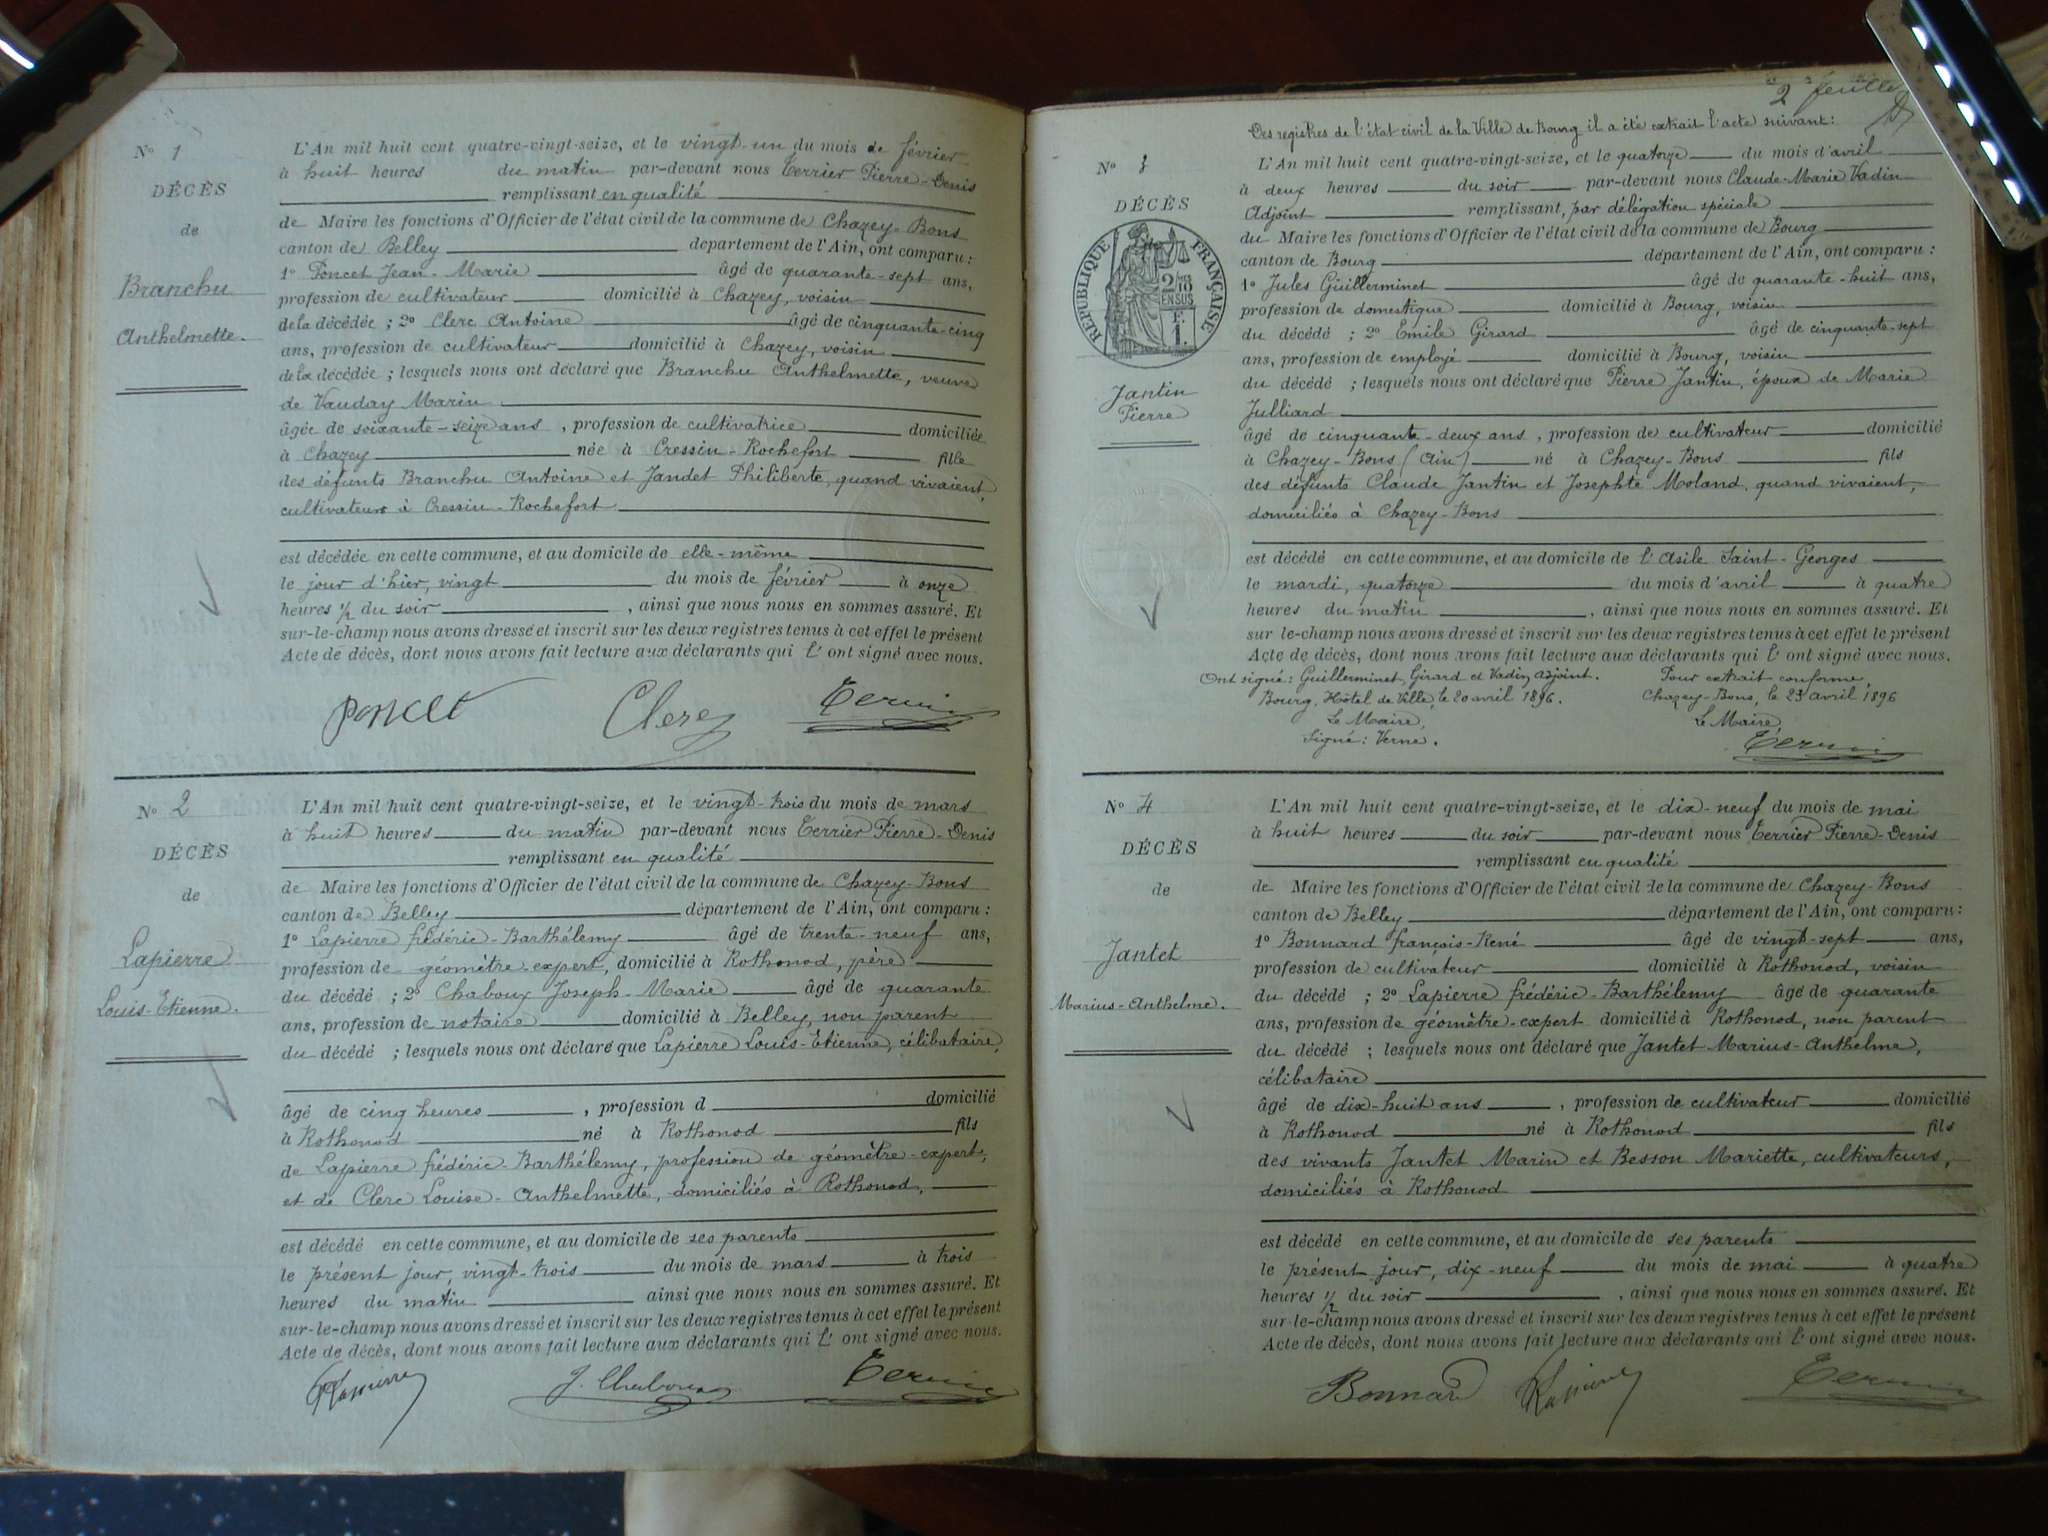 N° 1
DÉCÈS
de
Branchu
Anthelmette.
L'An mil huit cent quatre-vingt-seize, et le vingt-un du mois de février
à huit heures du matin par-devant nous Terrier Pierre-Denis
remplissant en qualité
de Maire les fonctions d'Officier de l'état civil de la commune de Chazey-Bons
canton de Belley département de l'Ain, ont comparu :
1° Poncet Jean-Marie âgé de quarante-sept ans,
profession de cultivateur domicilié à Chazey, voisin
de la décédée ; 2° Clerc Antoine âgé de cinquante-cinq
ans, profession de cultivateur domicilié à Chazey, voisin
de la décédée ; lesquels nous ont déclaré que Branchu Anthelmette, veuve
de Vauday Marin
âgée de soixante-seize ans, profession de cultivatrice domiciliée
à Chazey née à Cressin-Rochefort fille
des défunts Branchu Antoine et Jandet Philiberte, quand vivaient,
cultivateurs à Cressin-Rochefort
est décédée en cette commune, et au domicile de elle-même
le jour d'hier, vingt du mois de février à onze
heures ½ du soir, ainsi que nous nous en sommes assuré. Et
sur-le-champ nous avons dressé et inscrit sur les deux registres tenus à cet effet le présent
Acte de décès, dont nous avons fait lecture aux déclarants qui l'ont signé avec nous.
Poncet Clerc Terrier
N° 2
DÉCÈS
de
Lapierre
Louis-Etienne.
L'An mil huit cent quatre-vingt-seize, et le vingt-trois du mois de mars
à huit heures du matin par-devant nous Terrier Pierre-Denis
remplissant en qualité
de Maire les fonctions d'Officier de l'état civil de la commune de Chazey-Bons
canton de Belley département de l'Ain, ont comparu :
1° Lapierre frédéric-Barthélemy âgé de trente-neuf ans,
profession de géomètre-expert, domicilié à Rothonod, père
du décédé ; 2° Chaboux Joseph-Marie âgé de quarante
ans, profession de notaire domicilié à Belley, non parent
du décédé ; lesquels nous ont déclaré que Lapierre Louis-Etienne, célibataire,
âgé de cinq heures, profession d domicilié
à Rothonod né à Rothonod fils
de Lapierre frédéric-Barthélemy, profession de géomètre-expert,
et de Clerc Louise-Anthelmette, domiciliés à Rothonod,
est décédé en cette commune, et au domicile de ses parents
le présent jour, vingt-trois du mois de mars à trois
heures du matin ainsi que nous nous en sommes assuré. Et
sur-le-champ nous avons dressé et inscrit sur les deux registres tenus à cet effet le présent
Acte de décès, dont nous avons fait lecture aux déclarants qui l'ont signé avec nous.
Lapierre J. Chaboux Terrier
2e feuille
Des registres de l'état civil de la Ville de Bourg il a été extrait l'acte suivant :
N° 3
DÉCÈS
RÉPUBLIQUE FRANÇAISE
2/10
EN SUS
F.
1.
Jantin
Pierre
L'An mil huit cent quatre-vingt-seize, et le quatorze du mois d'avril
à deux heures du soir par-devant nous Claude-Marie Vadin
Adjoint remplissant, par délégation spéciale
du Maire les fonctions d'Officier de l'état civil de la commune de Bourg
canton de Bourg département de l'Ain, ont comparu :
1° Jules Guillerminet âgé de quarante-huit ans,
profession de domestique domicilié à Bourg, voisin
du décédé ; 2° Emile Girard âgé de cinquante-sept
ans, profession de employé domicilié à Bourg, voisin
du décédé ; lesquels nous ont déclaré que Pierre Jantin, époux de Marie
Julliard
âgé de cinquante-deux ans, profession de cultivateur domicilié
à Chazey-Bons (Ain) né à Chazey-Bons fils
des défunts Claude Jantin et Josephte Moland, quand vivaient,
domiciliés à Chazey-Bons
est décédé en cette commune, et au domicile de l'Asile Saint-Georges
le mardi, quatorze du mois d'avril à quatre
heures du matin, ainsi que nous nous en sommes assuré. Et
sur-le-champ nous avons dressé et inscrit sur les deux registres tenus à cet effet le présent
Acte de décès, dont nous avons fait lecture aux déclarants qui l'ont signé avec nous.
Ont signé : Guillerminet, Girard et Vadin, adjoint. Pour extrait conforme,
Bourg, Hôtel de Ville, le 20 avril 1896. Chazey-Bons, le 23 avril 1896
Le Maire, Le Maire,
Signé : Verne. Terrier
N° 4
DÉCÈS
de
Jantet
Marius-Anthelme.
L'An mil huit cent quatre-vingt-seize, et le dix-neuf du mois de mai
à huit heures du soir par-devant nous Terrier Pierre-Denis
remplissant en qualité
de Maire les fonctions d'Officier de l'état civil de la commune de Chazey-Bons
canton de Belley département de l'Ain, ont comparu :
1° Bonnard françois-René âgé de vingt-sept ans,
profession de cultivateur domicilié à Rothonod, voisin
du décédé ; 2° Lapierre frédéric-Barthélemy âgé de quarante
ans, profession de géomètre-expert domicilié à Rothonod, non parent
du décédé ; lesquels nous ont déclaré que Jantet Marius-Anthelme,
célibataire
âgé de dix-huit ans, profession de cultivateur domicilié
à Rothonod né à Rothonod fils
des vivants Jantet Marin et Besson Mariette, cultivateurs,
domiciliés à Rothonod
est décédé en cette commune, et au domicile de ses parents
le présent jour, dix-neuf du mois de mai à quatre
heures ½ du soir, ainsi que nous nous en sommes assuré. Et
sur-le-champ nous avons dressé et inscrit sur les deux registres tenus à cet effet le présent
Acte de décès, dont nous avons fait lecture aux déclarants qui l'ont signé avec nous.
Bonnard Lapierre Terrier